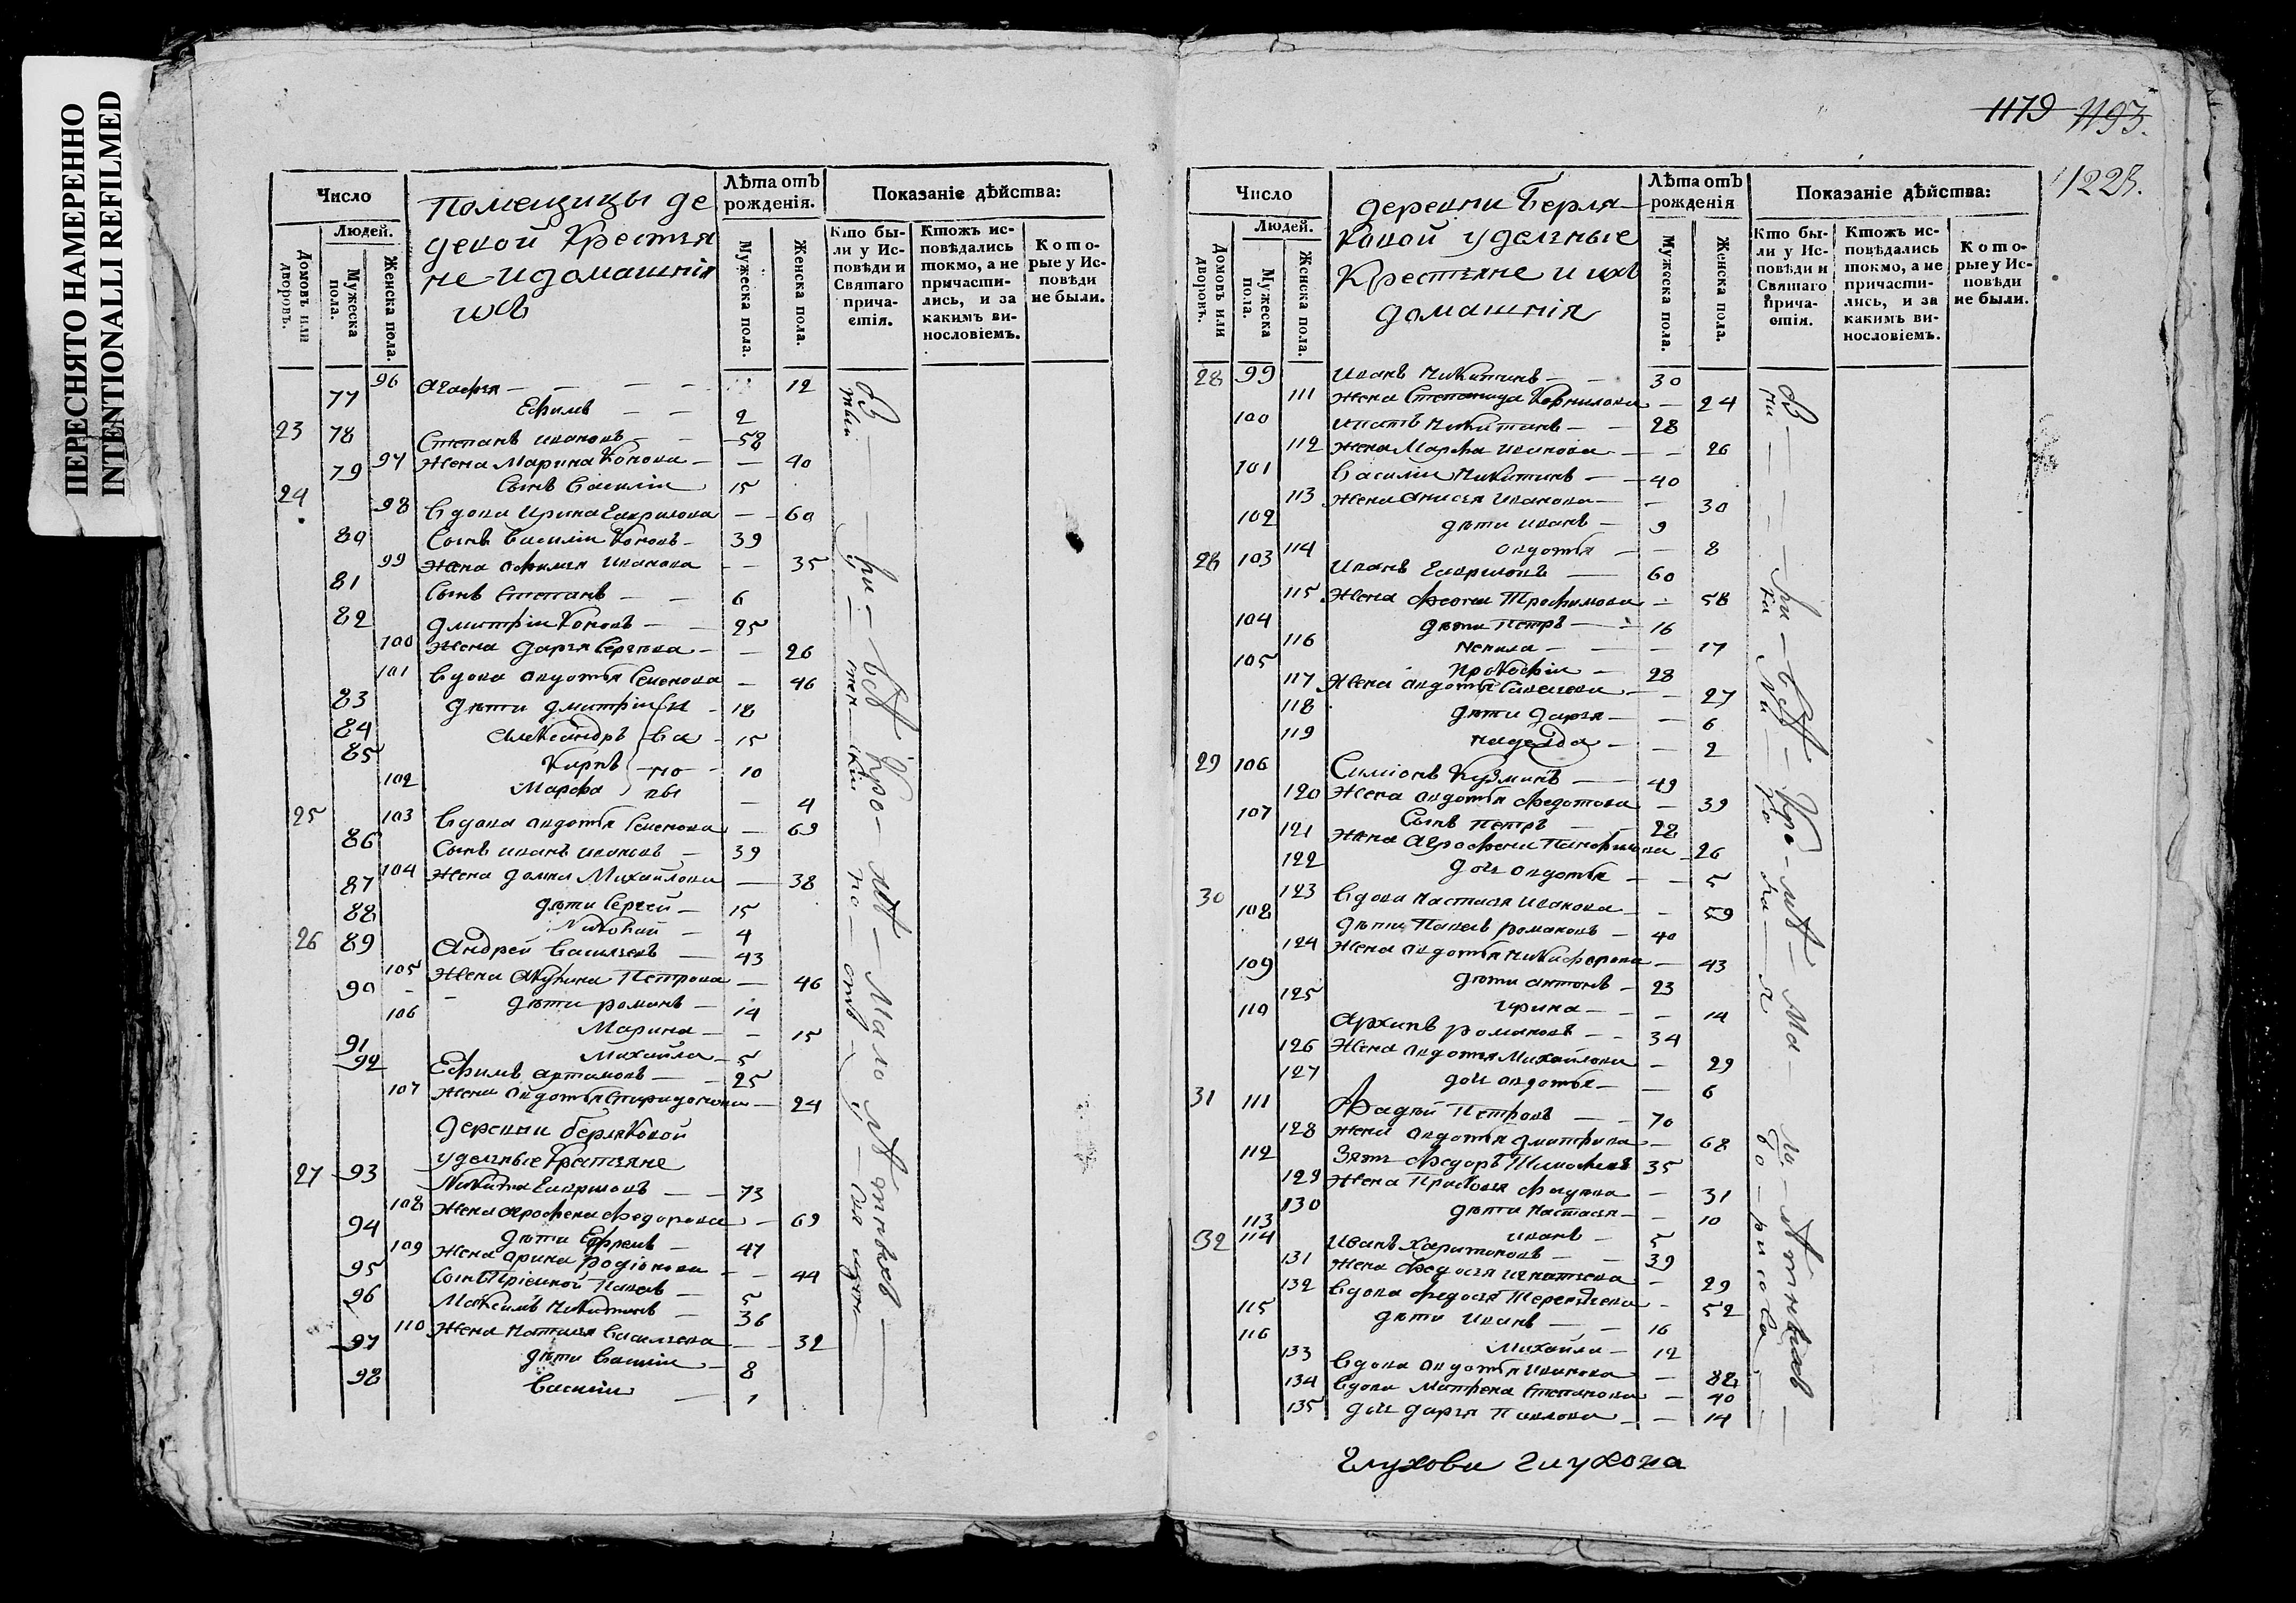 ПЕРЕСНЯТО НАМЕРЕННО
INTENTIONALLI REFILMED
1179 1193.
1223.
Число
Людей.
Домовъ или дворовъ.
Мужеска пола.
Женска пола.
Помещицы де
девой Крестья
не и домашнія
ихъ
Лѣта отъ рожденія.
Мужеска пола.
Женска пола.
Показаніе дѣйства:
Кто бы-
ли у Ис-
повѣди и
Святаго
прича-
стія.
Ктожъ ис-
повѣдались
токмо, а не
причасти-
лись, и за
какимъ ви-
нословіемъ.
Кото-
рые у Ис-
повѣди
не были.
96 Агафья — 12
77 Ефимъ — 2
23 78 Степанъ Ивановъ — 58
97 Жена Марина Конова — 40
79 Сынъ Василіи 15
24 98 Вдова Ирина Гаврилова — 60
80 Сынъ Василіи Коновъ 39
99 Жена Афимья Иванова — 35
81 Сынъ Степанъ — 6
82 Дмитріи Коновъ — 25
100 Жена Дарья Сергѣева — 26
101 Вдова Авдотья Семенова — 46
83 Дѣти Дмитріи 18
84 Александръ 15
85 Карпъ 10
102 Марфа — 4
25 103 Вдова Авдотья Семенова — 69
86 Сынъ Иванъ Ивановъ — 39
104 Жена Домна Михайлова — 38
87 Дѣти Сергей — 15
88 Николай — 4
26 89 Андрей Васильевъ — 43
105 Жена Акулина Петрова — 46
90 Дѣти Романъ — 14
106 Марина — 15
91 Михайла — 5
92 Ефимъ Артамовъ — 25
107 Жена Авдотья Спиридонова — 24
Деревни Берляковой
удельные Крестьяне
27 93 Никита Гавриловъ — 73
108 Жена Аграфена Федорова — 69
94 Дѣти Ефремъ — 47
109 Жена Арина Родіонова — 44
95 Сынъ Пріемной Павелъ — 5
96 Максимъ Никитинъ — 36
110 Жена Наталья Васильева — 32
97 Дѣти Василіи — 8
98 Василіи — 1
Число
Людей.
Домовъ или дворовъ.
Мужеска пола.
Женска пола.
деревни Берля
ковой удельные
Крестьяне и ихъ
домашнія
Лѣта отъ рожденія
Мужеска пола.
Женска пола.
Показаніе дѣйства:
Кто бы-
ли у Ис-
повѣди и
Святаго
прича-
стія.
Ктожъ ис-
повѣдались
токмо, а не
причасти-
лись, и за
какимъ ви-
нословіемъ.
Кото-
рые у Ис-
повѣди
не были.
28 99 Иванъ Никитинъ — 30
111 Жена Степанида Корнилова — 24
100 Ипатъ Никитинъ — 28
112 Жена Марфа Иванова — 26
101 Василіи Никитинъ — 40
113 Жена Анисья Иванова — 30
102 Дѣти Иванъ — 9
114 Авдотья — 8
28 103 Иванъ Гавриловъ — 60
115 Жена Фекла Трофимова — 58
104 Дѣти Петръ — 16
116 Ненила — 17
105 Прокофіи — 28
117 Жена Авдотья Савельева — 27
118 Дѣти Дарья — 6
119 Надежда — 2
29 106 Симіонъ Кузминъ — 49
120 Жена Авдотья Федотова — 39
107 Сынъ Петръ — 22
121 Жена Аграфена Панфилова 26
122 Дочь Авдотья — 5
30 123 Вдова Настасья Иванова — 59
108 Дѣти Павелъ Романовъ — 40
124 Жена Авдотья Никифорова — 43
109 Дѣти Антонъ — 23
125 Ирина — 14
110 Архипъ Романовъ — 34
126 Жена Авдотья Михайлова — 29
127 Дочь Авдотья — 6
31 111 Фадѣй Петровъ — 70
128 Жена Авдотья Дмитріева — 68
112 Зять Федоръ Тимофеевъ 35
129 Жена Прасковья Фадѣева — 31
130 Дѣти Настасья — 10
113 Иванъ — 5
32 114 Иванъ Харитоновъ — 39
131 Жена Федосья Игнатьева — 29
132 Вдова Федосья Терентьева — 52
115 Дѣти Иванъ — 16
116 Михайла — 12
133 Вдова Авдотья Иванова — 82
134 Вдова Матрена Степанова — 40
135 Дочь Дарья Павлова — 14
Глухова Глухова